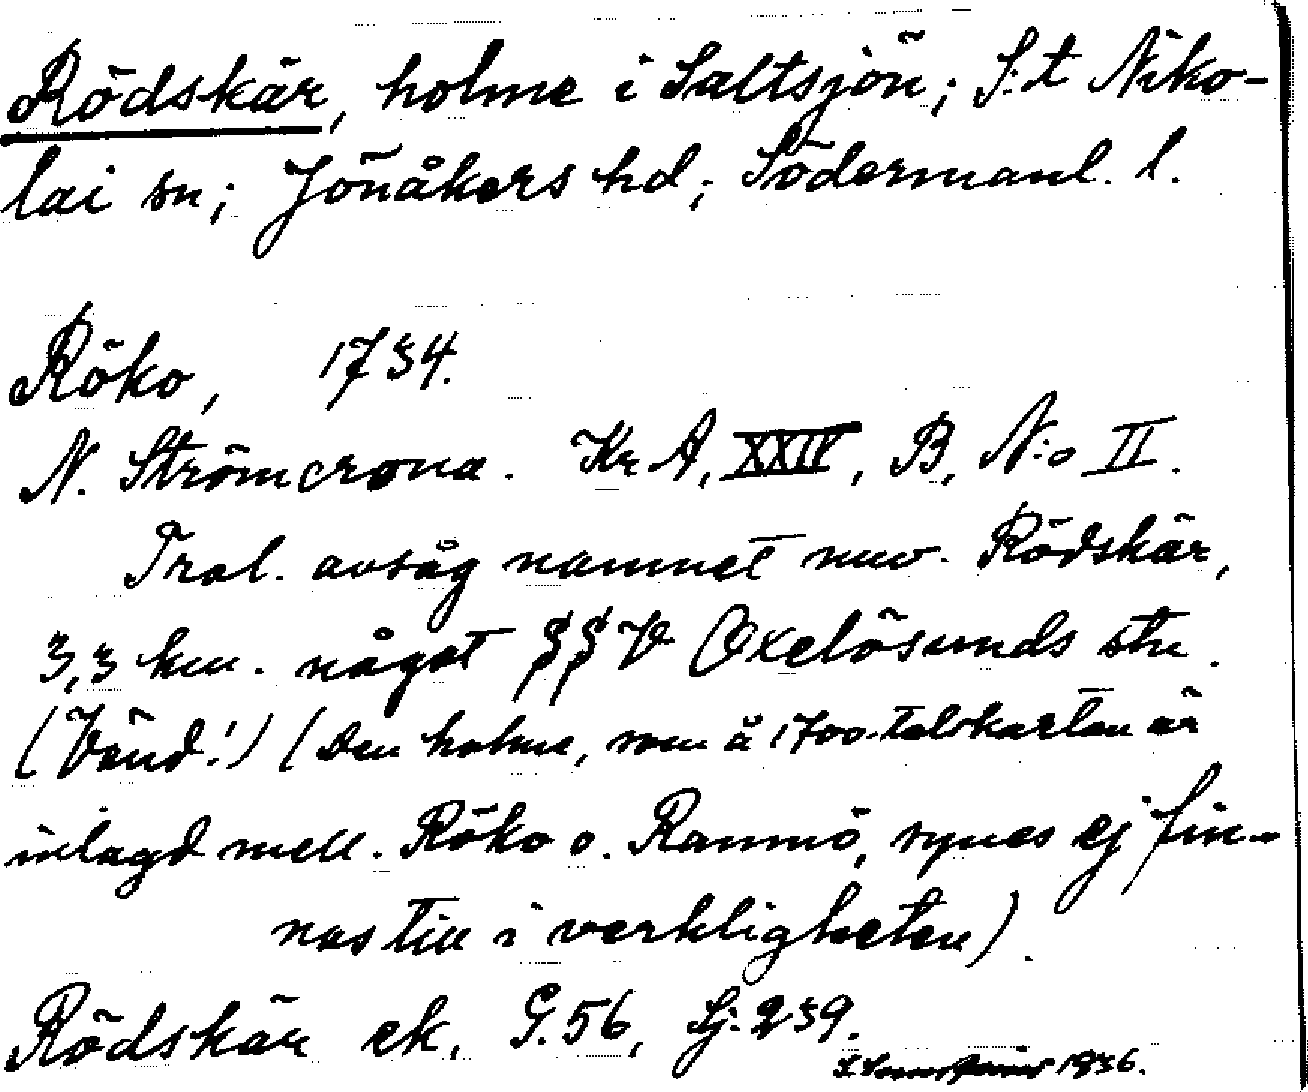 Rödskär, holme i Saltsjön; S:t Niko-
lai sn; Jönåkers hd; Södermanl. l.
Röko, 1734.
N. Strömcrona. Kr A, XXIV, B, N:o II.
Trol. avsåg namnet nuv. Rödskär,
3,3 km. något §§V Oxelösunds stn.
(Vänd!) (Den holme, som å 1700-talskartan är
inlagd mell. Röko o. Rammö, synes ej fin-
nas till i verkligheten).
Rödskär ek. G.56, Sj. 239.
1936.